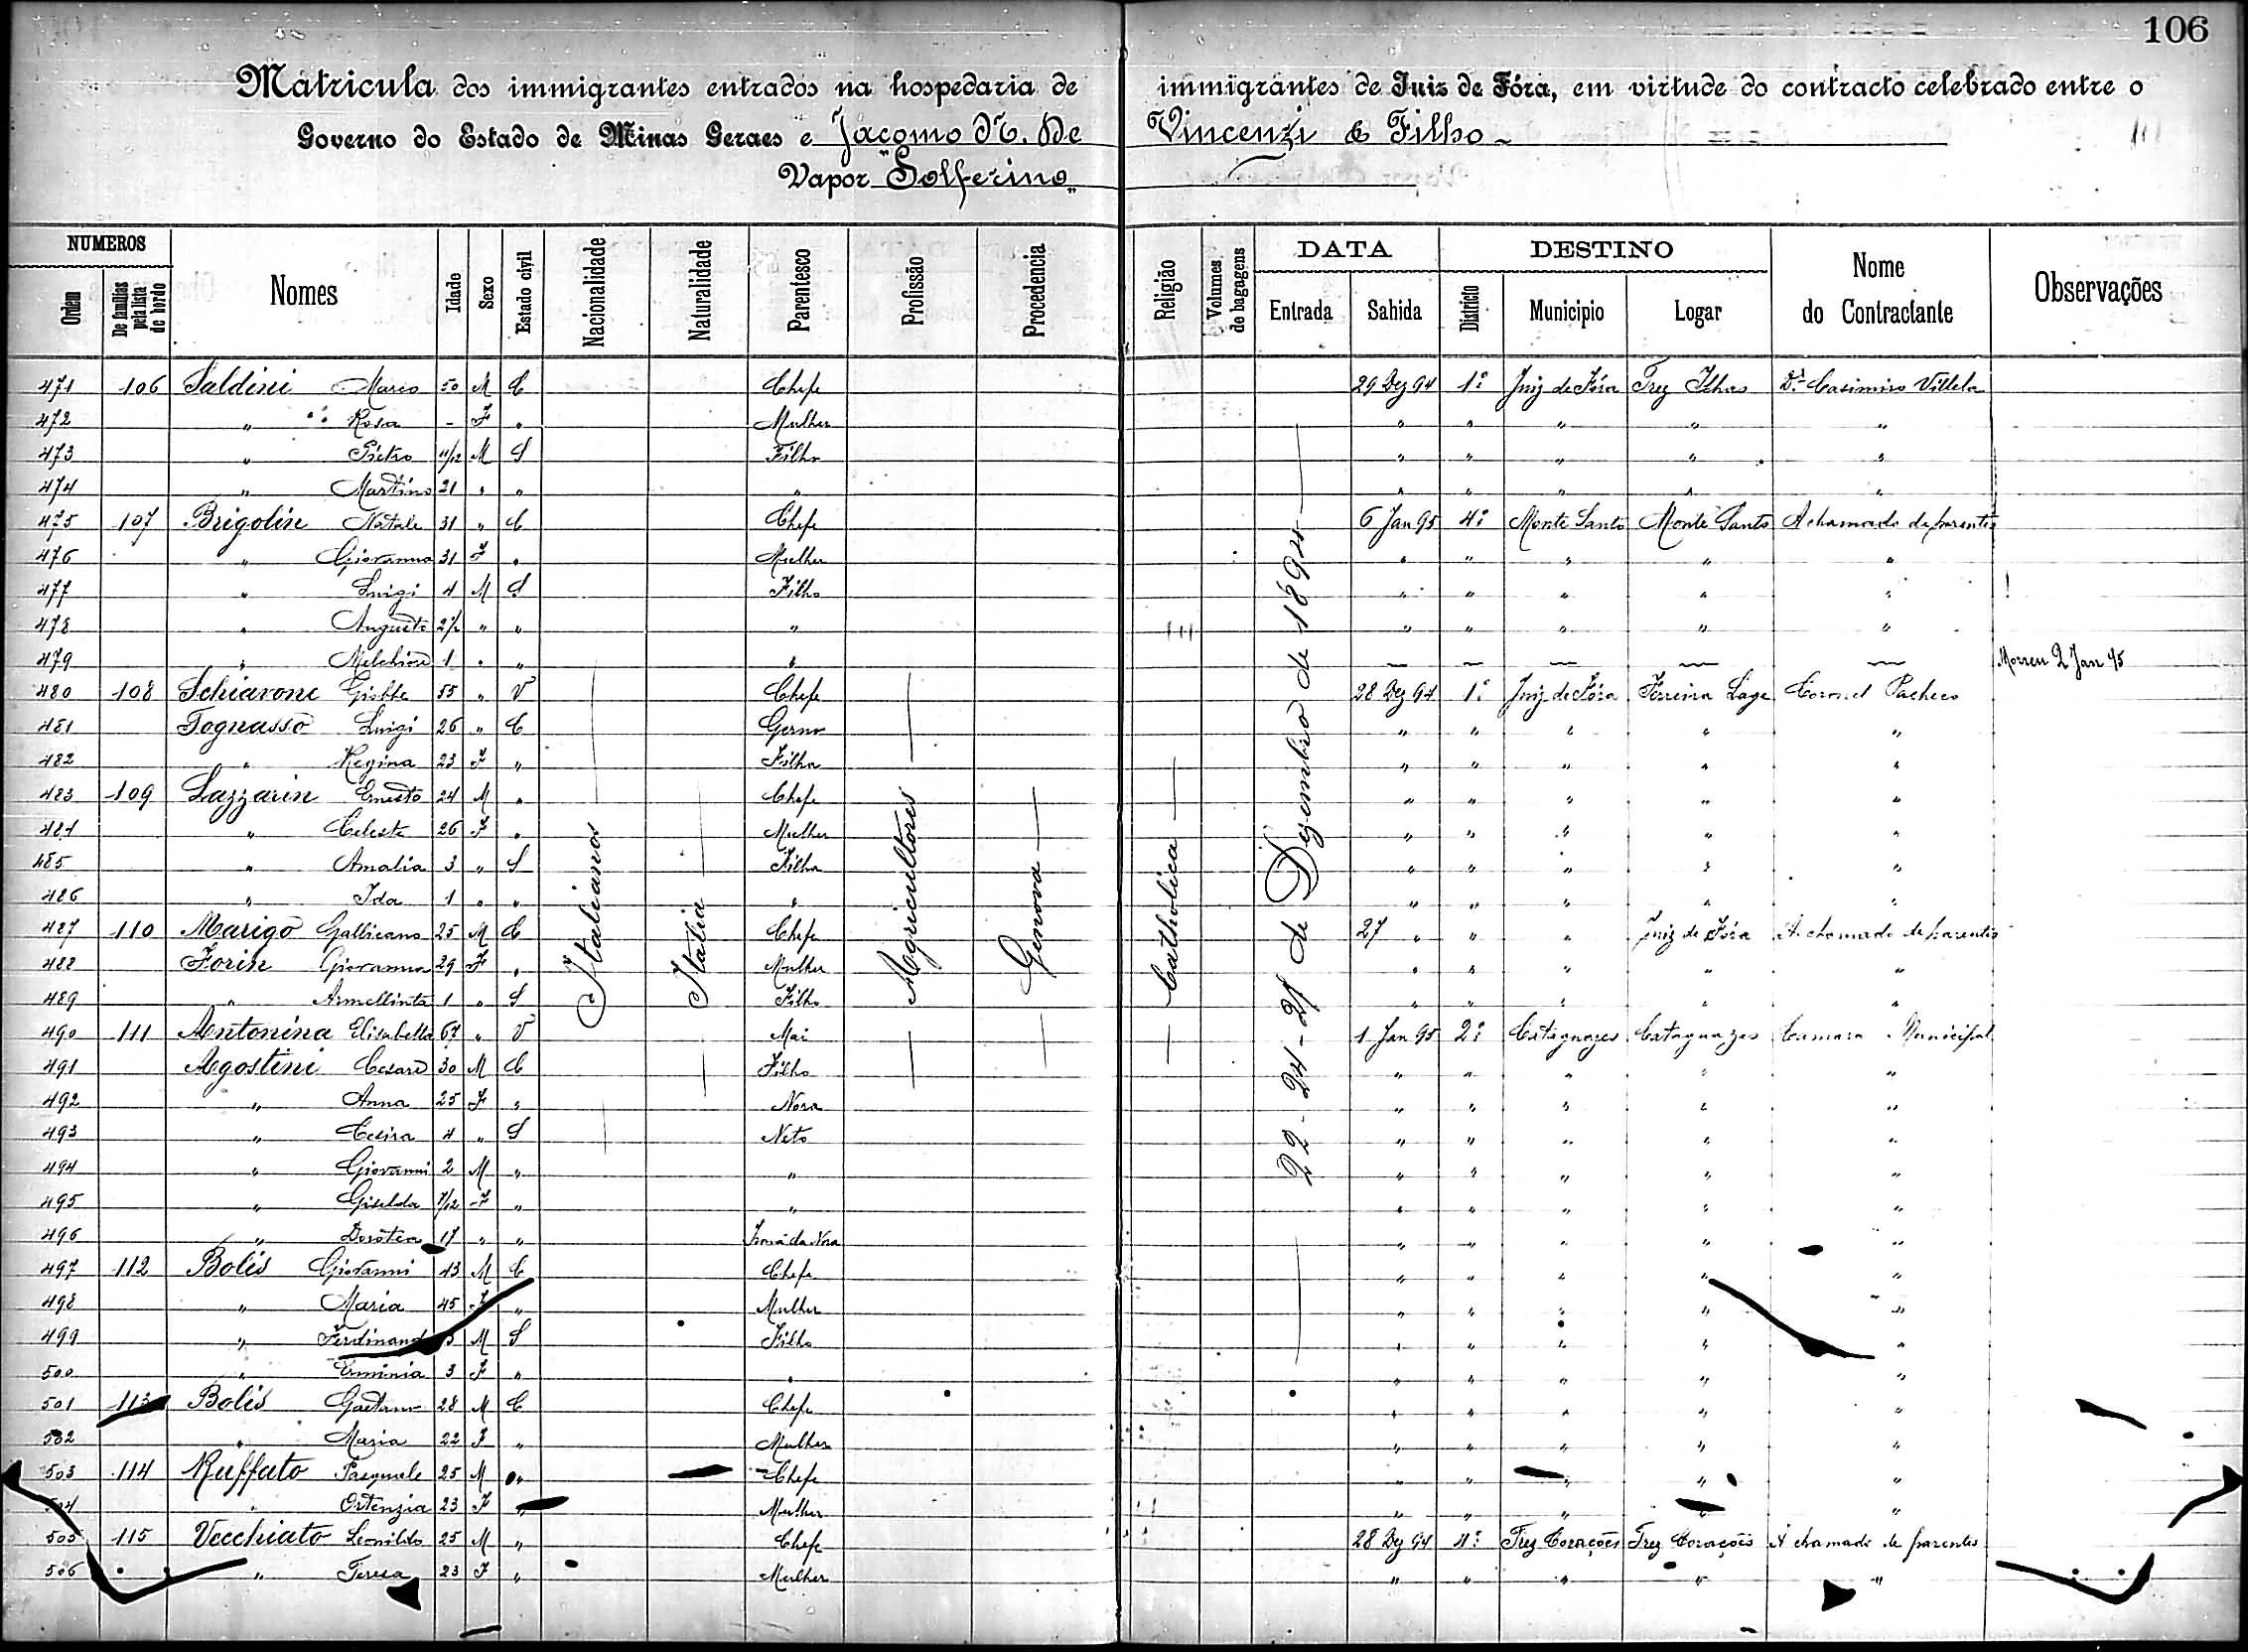 106
Matricula dos immigrantes entrados na hospedaria de immigrantes de Juiz de Fóra, em virtude do contracto celebrado entre o
Governo do Estado de Minas Geraes e Jacomo N. de Vincenzi & Filho
Vapor "Solferino"
NUMEROS DATA DESTINO
Ordem De familias pela lista de bordo Nomes Idade Sexo Estado civil Nacionalidade Naturalidade Parentesco Profissão Procedencia Religião Volumes de bagagens Entrada Sahida Districto Municipio Logar Nome do Contractante Observações
Italianos Italia Agricultores Genova Catholica 22-24-21 de Dezembro de 1894
471 106 Saldini Marco 50 M C Chefe 29 Dez 94 1º Juiz de Fóra Trez Ilhas Dr. Casimiro Villela
472 " Rosa - F " Mulher " " " " "
473 " Pietro 11/12 M S Filho " " " " "
474 " Martino 21 " " " " " " " "
475 107 Brigolin Natale 31 " C Chefe 6 Jan 95 4º Monte Santo Monte Santo A chamado de parentes
476 " Giovanna 31 F " Mulher " " " " "
477 " Luigi 4 M S Filho " " " " "
478 " Augusto 2½ " " " " " " " "
479 " Melchiore 1 " " " — — — — — Morreu 2 Jan 95
480 108 Schiavone Gioppe 55 " V Chefe 28 Dez 94 1º Juiz de Fóra Ferreira Lage Coronel Pacheco
481 Tognasso Luigi 26 " C Genro " " " " "
482 " Regina 23 F " Filha " " " " "
483 109 Lazzarin Ernesto 24 M " Chefe " " " " "
484 " Celeste 26 F " Mulher " " " " "
485 " Amalia 3 " S Filha " " " " "
486 " Ida 1 " " " " " " " "
487 110 Marigo Gallicano 25 M C Chefe 27 " " " Juiz de Fóra A chamado de parentes
488 Forin Giovanna 29 F " Mulher " " " " "
489 " Armellinta 1 " S Filho " " " " "
490 111 Antonina Elisabetta 67 " V Mai 1 Jan 95 2º Cataguazes Cataguazes Camara Municipal
491 Agostini Cesare 30 M C Filho " " " " "
492 " Anna 25 F " Nora " " " " "
493 " Cesira 4 " S Neto " " " " "
494 " Giovanni 2 M " " " " " " "
495 " Giselda 7/12 F " " " " " " "
496 " Dorotea 17 " " Irmã da Nora " " " " "
497 112 Bolis Giovanni 43 M C Chefe " " " " "
498 " Maria 45 F " Mulher " " " " "
499 " Ferdinando M S Filho " " " " "
500 " Erminia 3 F " " " " " " "
501 113 Bolis Gaetano 28 M C Chefe " " " " "
502 " Maria 22 F " Mulher " " " " "
503 114 Ruffato Pasquale 25 M " Chefe " " " " "
504 " Ortenzia 23 F " Mulher " " " " "
505 115 Vecchiato Leonildo 25 M " Chefe 28 Dez 94 4º Trez Corações Trez Corações A chamado de parentes
506 " Teresa 23 F " Mulher " " " " "